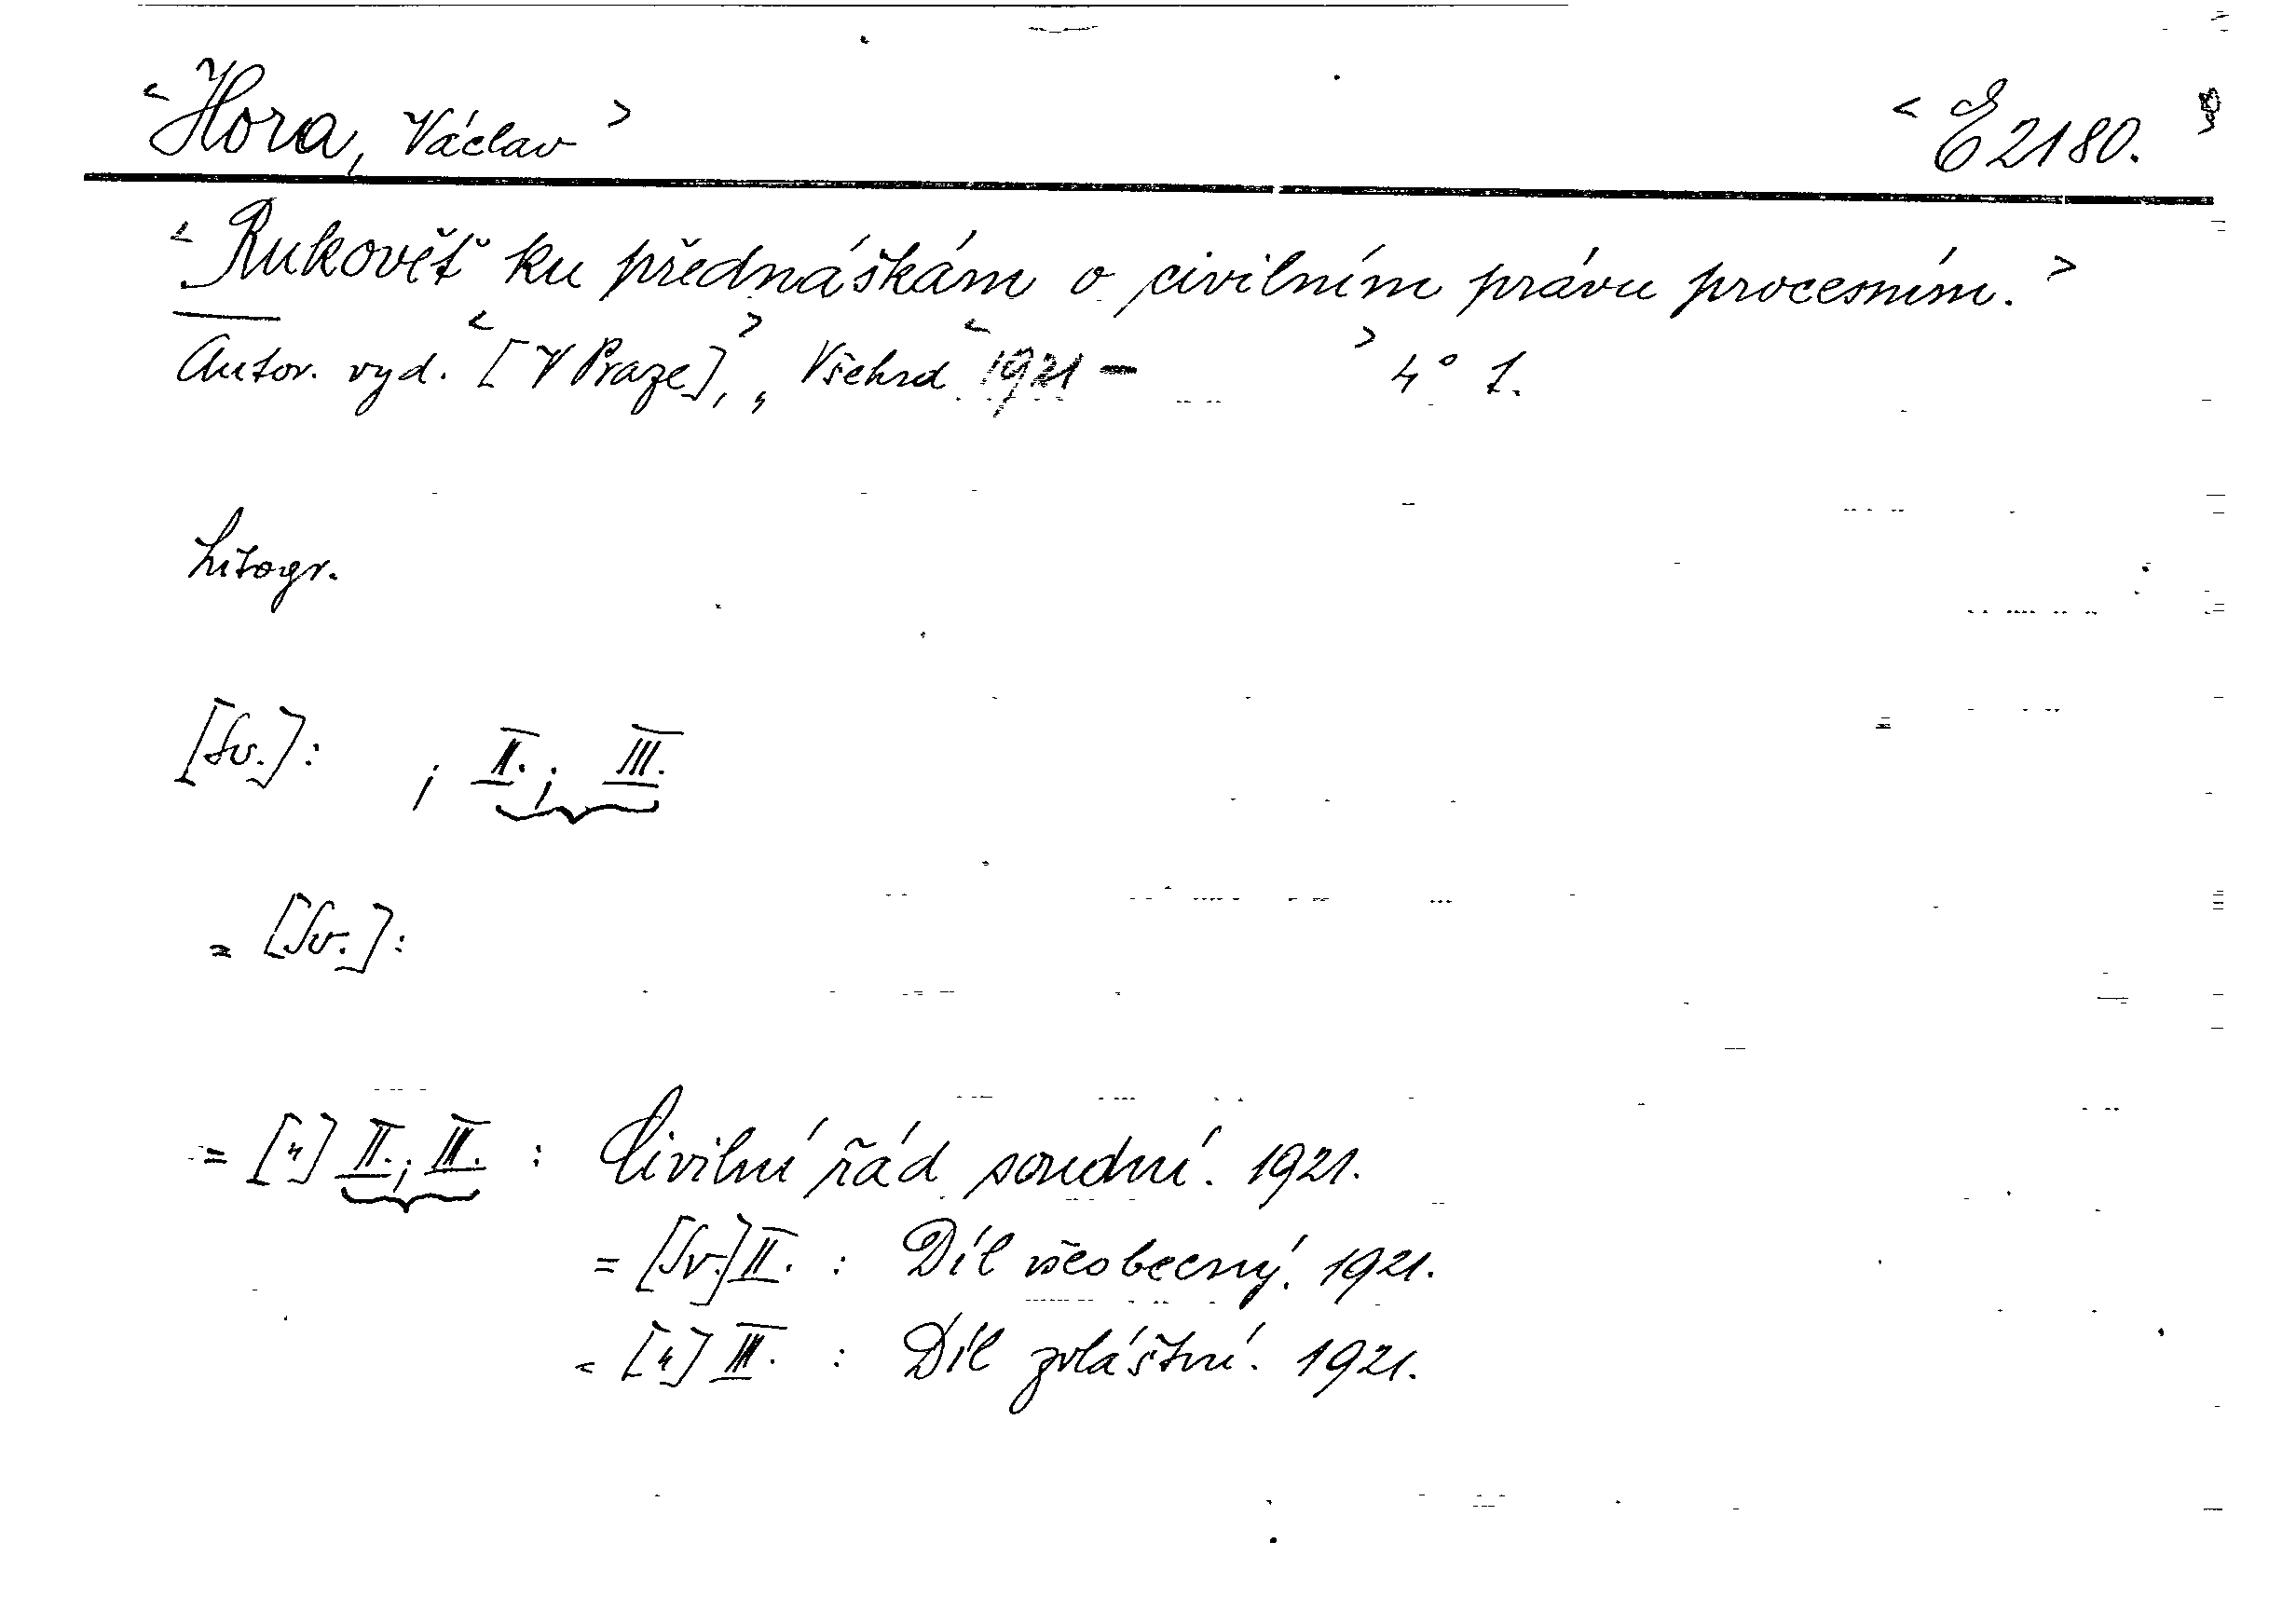 < Hora, Václav > < E 2180. >
< Rukověť ku přednáškám o civilním právu procesním. >
Autor. vyd. < [V Praze], > „Všehrd" < 1921 – > 4° 1.
Litogr.
[Sv.]: ; II.; III.
= [Sv.]:
= [„] II.; III. : Civilní řád soudní. 1921.
= [Sv.] II. : Díl všeobecný. 1921.
= [„] III. : Díl zvláštní. 1921.